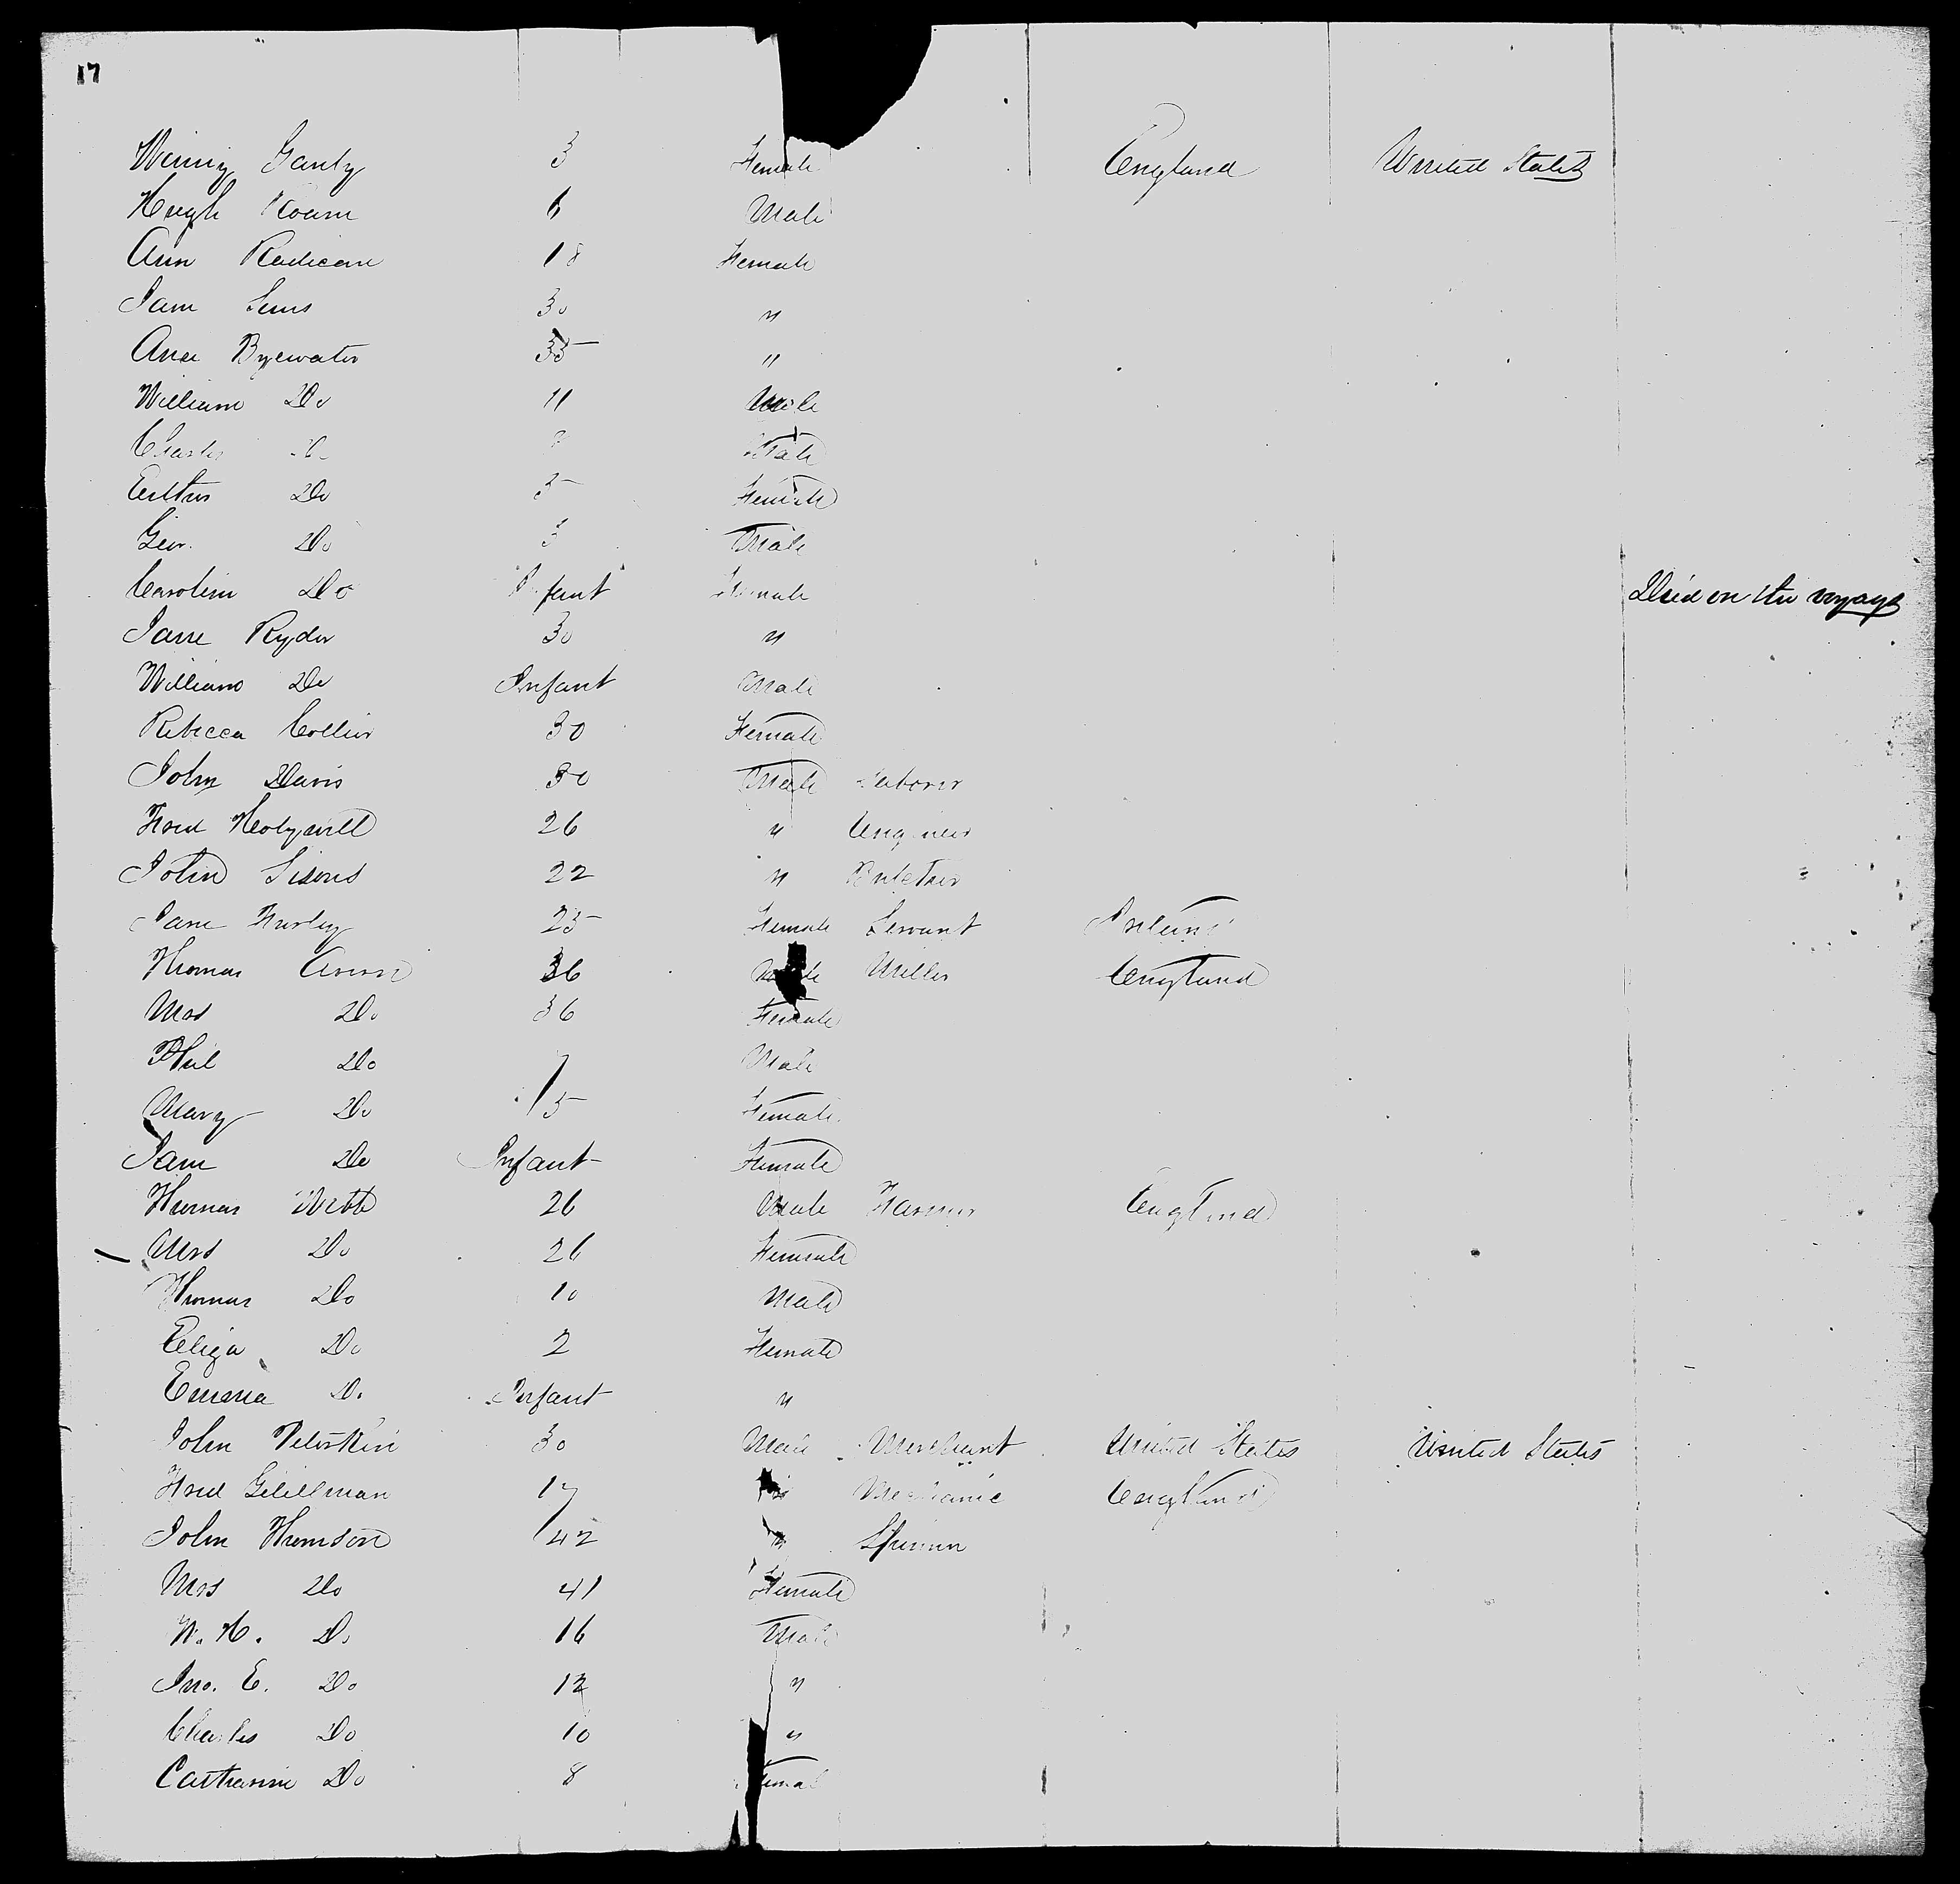 17
Winny Ganly 3 Female England United States
Hugh 6 Male
Ann Radican 18 Female
Jane 30 "
Ann Byewater 35 "
William Do 11 Male
Charles Do Male
Do 5 Female
Geo. Do 3 Male
Caroline Do Infant Female Died on the voyage
Jane Ryder 30 "
William Do Infant Male
Rebecca Collier 30 Female
John Davis 30 Male Laborer
Fred Holywell 26 " Engineer
John 22 " Butcher
Jane Hurley 25 Female Servant Ireland
Thomas 36 Male Miller England
Mrs Do 36 Female
Phil Do 7 Male
Mary Do 5 Female
Jane Do Infant Female
Thomas Webb 26 Male Farmer England
Mrs Do 26 Female
Thomas Do 10 Male
Eliza Do 2 Female
Emma Do Infant "
John Peterkin 30 Male Merchant United States United States
Fred 17 " Mechanic England
John Thomson 42 " Spinner
Mrs Do 41 Female
W. H. Do 16 Male
Jno. E. Do 12 "
Charles Do 10 "
Catharine Do 8 Female